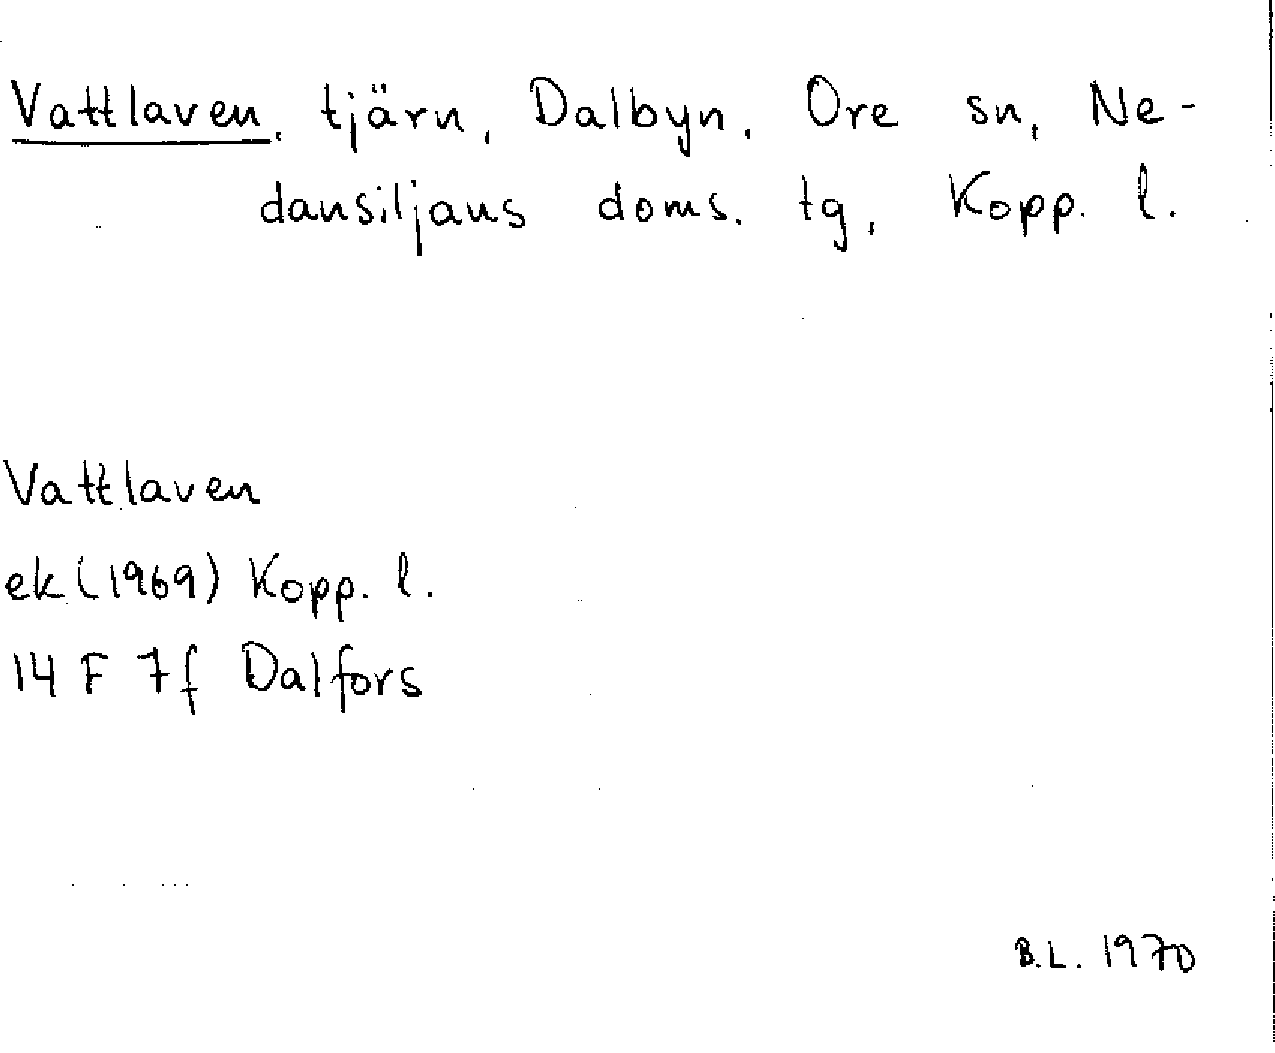 Vattlaven, tjärn, Dalbyn, Ore sn, Ne-
dansiljans doms. tg, Kopp. l.
Vattlaven
ek (1969) Kopp. l.
14 F 7f Dalfors
B.L. 1970